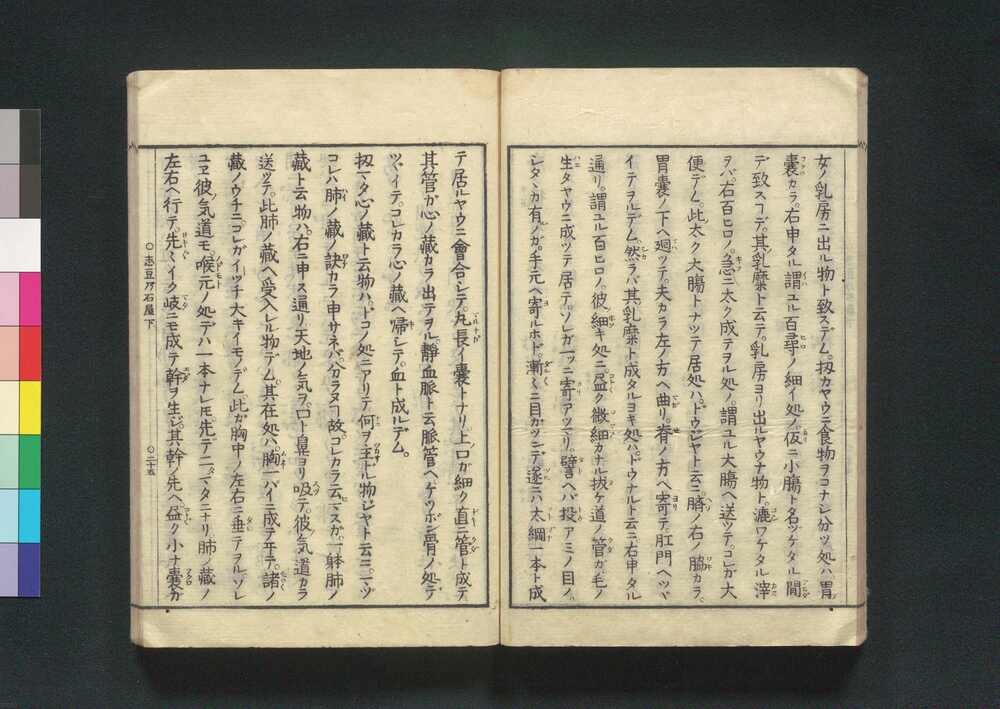 女ノ乳房ニ出ル物ト致スデム。扨カヤウニ食物ヲコナシ分ツ処ハ胃
嚢カラ。右申タル謂ユル百尋ノ細イ処ノ仮ニ小腸ト名ツケタル間
デ致スコデ。其乳糜ト云テ。乳房ヨリ出ルヤウナ物ト。漉ワケタル滓
ヲバ。右百ヒロノ。急ニ太ク成テヲル処ノ。謂ユル大腸ヘ送ツテ。コレガ大
便デム。此太ク大腸トナツテ居処ハ。ドウジヤト云ニ。臍ノ右ノ脇カラ。
胃嚢ノ下ヘ廻ツテ。夫カラ左ノ方ヘ曲リ。脊ノ方ヘ寄テ。肛門ヘツヾ
イテヲルデム。然ラバ其乳糜ト成タルヨキ処ハ。ドウナルト云ニ右申タル
通リ。謂ユル百ヒロノ。彼細キ処ニ。尽ク微細カナル抜ケ道ノ管ガ毛ノ
生タヤウニ成ツテ居テ。ソレガ一ツニ寄アツマリ。譬ヘバ投アミノ目ノ。
シタヽカ有ノガ。手元ヘ寄ルホド。漸〻ニ目ガツンデ遂ニハ太綱一本ト成
テ居ルヤウニ會合シテ。丸長イ嚢トナリ上ノ口ガ細ク直ニ管ト成テ
其管ガ心ノ藏カラ出テヲル。静血脈ト云脈管ヘ。ケツボン骨ノ処デ
ツヾイテ。コレカラ心ノ藏ヘ帰シテ。血ト成ルデム。
扨マタ心ノ藏ト云物ハ。ドコノ処ニアリテ何ヲ主ドル物ジヤト云ニ。マヅ
コレハ肺ノ藏ノ訣カラ申サネバ。分ラヌヿ故。コレカラ云マスガ。一躰肺ノ
藏ト云物ハ。右ニ申ス通リ天地ノ気ヲ。口ト鼻ヨリ吸テ。彼気道カラ
送ツテ。此肺ノ藏ヘ受入レル物デム。其在処ハ。胸一パイニ成テヰテ。諸ノ
藏ノウチニ。コレガイツチ大キイモノデム。此ガ胸中ノ左右ニ垂テヲル。ソレ
ユヱ彼ノ気道モ。喉元ノ処デハ一本ナレ𪜈先デニマタニナリ肺ノ藏ノ
左右ヘ行テ。先〻イク岐ニモ成テ幹ヲ生ジ。其幹ノ先ヘ。尽ク小ナ嚢ガ
○志豆乃石屋下
○二十五